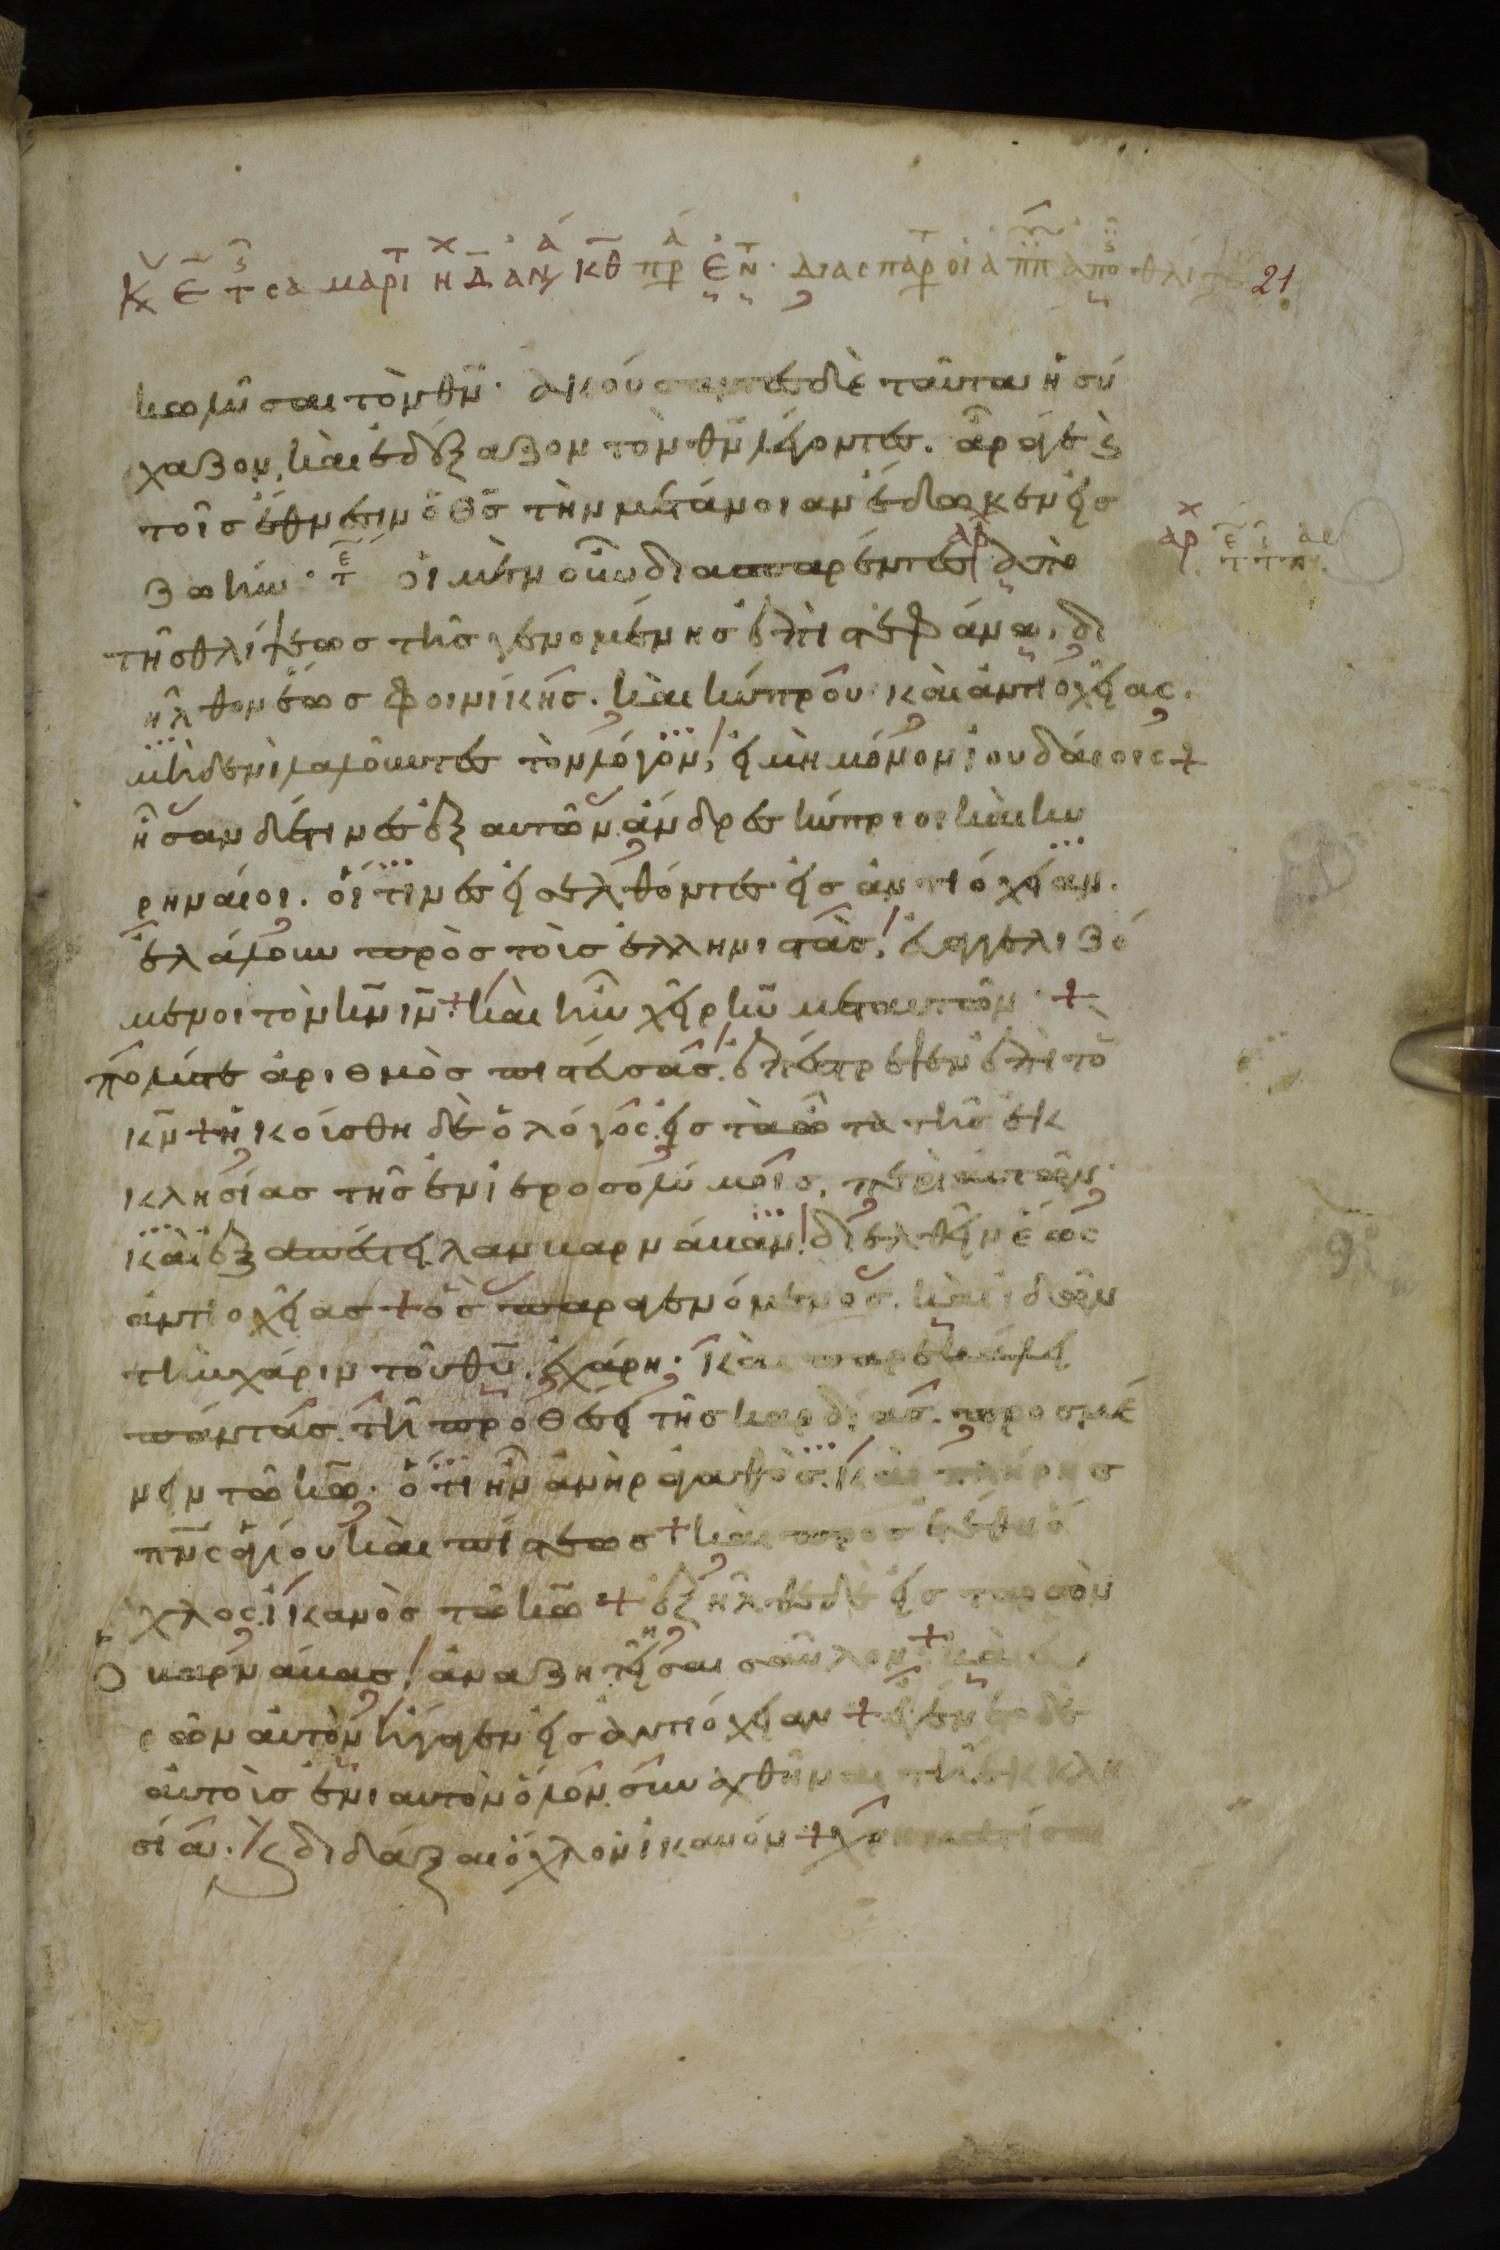 21
κωλῦσαι τὸν θν̄· ἀκούσαντες δὲ ταῦτα ἡσύ
χαζον, καὶ ἐδόξαζον τὸν θν̄ λέγοντες. ἄρα γε καὶ
τοῖς ἔθνεσιν ὁ θς̄ τὴν μετάνοιαν ἔδωκεν εἰς
ζωήν· οἱ μὲν οὖν διασπαρέντες ἀπὸ
τῆς θλίψεως τῆς γενομένης ἐπὶ στεφάνω, δι
ῆλθον ἕως φοινίκης. καὶ κύπρου καὶ ἀντιοχείας.
μηδενὶ λαλοῦντες τὸν λόγον, εἰ μὴ μόνον ἰουδαίοις +
ἦσαν δέ τινες ἐξ αυτῶν ἄνδρες κύπριοι καὶ κυ
ρηναίοι. οἵτινες εἰσελθόντες εἰς ἀντιόχειαν.
ἐλάλουν πρὸς τοὺς ἑλληνιστάς, εὐαγγελιζό
μενοι τὸν κν̄ ιν̄ + καὶ ἦν χεὶρ κῡ μετ αυτῶν · +
πολύς τε ἀριθμὸς πιστεύσας, ἐπέστρεψεν ἐπὶ τὸ
κν̄ + ἠκούσθη δὲ ὁ λόγος εἰς τὰ ὦτα τῆς ἐκ
κλησίας τῆς ἐν ἱεροσολύμοις, περὶ αυτῶν·
καὶ ἐξαπέστειλαν βαρνάβαν, διελθεῖν ἕως
ἀντιοχείας + ὃς παραγενόμενος. καὶ ἰδὼν
τὴν χάριν τοῦ θῡ. ἐχάρη· καὶ παρεκάλει
πάντας τῆ προθέσει τῆς καρδίας. προσμέ
νειν τῶ κω̄· ὅτι ἦν ἀνὴρ ἀγαθὸς, καὶ πλήρης
πν̄ς ἁγίου καὶ πίστεως + καὶ προσετέθη ὄ
χλος ἱκανὸς τῶ κω̄ + ἐξῆλθε δὲ εἰς ταρσὸν
ὁ βαρνάβας, ἀναζητῆσαι σαῦλον + καὶ εὑ
ρὼν ἀυτὸν ἤγαγεν εἰς ἀντιόχειαν + ἐγένετο δὲ
ἀυτοὺς ἐνιαυτὸν ὅλον συναχθῆναι τῆ ἐκκλη
σία. καὶ διδάξαι ὄχλον ἱκανόν +